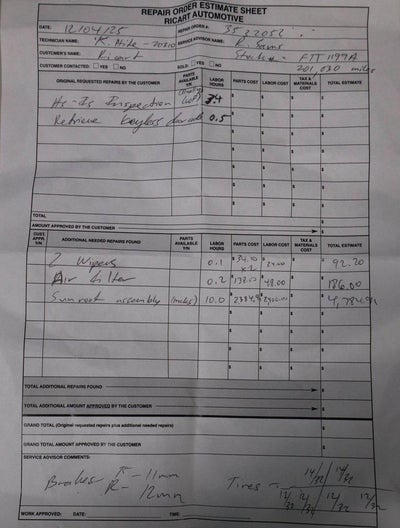 REPAIR ORDER ESTIMATE SHEET
RICART AUTOMOTIVE
DATE: 12/04/25 REPAIR ORDER #: 3522052
TECHNICIAN NAME: R. Hite - 20310 SERVICE ADVISOR NAME: R.
CUSTOMER'S NAME: Ricart Stock# - FTT1197A
CUSTOMER CONTACTED: YES NO SOLD: YES NO 201,030 miles
ORIGINAL REPAIRS REQUESTED BY THE CUSTOMER PARTS AVAILABLE Y/N LABOR HOURS PARTS COST LABOR COST TAX & MATERIALS COST TOTAL ESTIMATE
As-Is Inspection 3.4
Retrieve keyless door code 0.5
TOTAL
AMOUNT APPROVED BY THE CUSTOMER
CUST. APPR. Y/N ADDITIONAL NEEDED REPAIRS FOUND PARTS AVAILABLE Y/N LABOR HOURS PARTS COST LABOR COST TAX & MATERIALS COST TOTAL ESTIMATE
2 Wipers 0.1 $34.10 x2 $24.00 $92.20
Air filter 0.2 $138.00 $48.00 $186.00
Sunroof assembly 10.0
TOTAL ADDITIONAL REPAIRS FOUND $
TOTAL ADDITIONAL AMOUNT APPROVED BY THE CUSTOMER $
GRAND TOTAL (Original requested repairs plus additional needed repairs)
GRAND TOTAL AMOUNT APPROVED BY THE CUSTOMER
SERVICE ADVISOR COMMENTS:
Brakes F - 11mm Tires - 14/32 14/32
R - 12mm 12/32 12/32 12/32 12/32
WORK APPROVED: DATE: TIME: